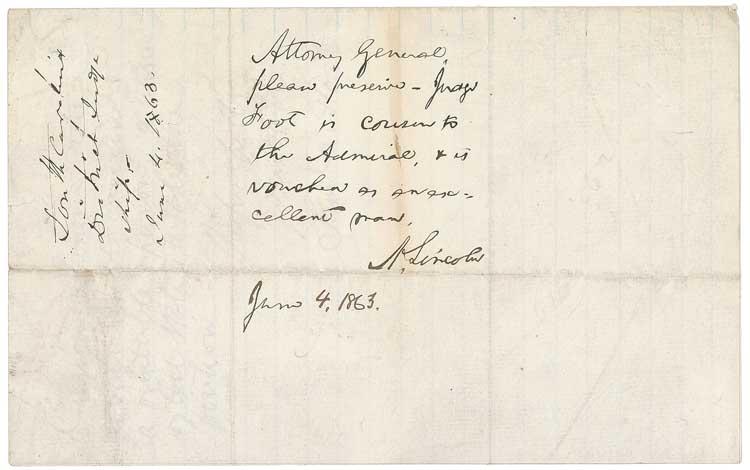 South Carolina
District Judge
ship-
June 4. 1863.
Attorney General,
please preserve - Judge
Foot is cousin to
the Admiral, & is
vouched as an ex-
cellent man,
A. Lincoln
June 4, 1863.